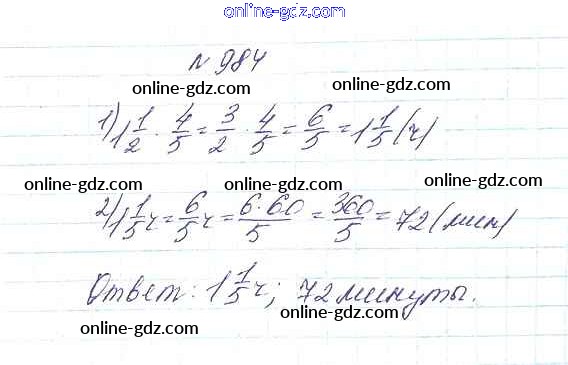 online-gdz.com
№ 984
online-gdz.com
1) 1 1/2 · 4/5 = 3/2 · 4/5 = 6/5 = 1 1/5 (ч)
online-gdz.com online-gdz.com
online-gdz.com online-gdz.com online-gdz.com
2) 1 1/5 ч = 6/5 ч = 6·60/5 = 360/5 = 72 (мин)
online-gdz.com online-gdz.com
Ответ: 1 1/5 ч; 72 минуты.
online-gdz.com
online-gdz.com
online-gdz.com